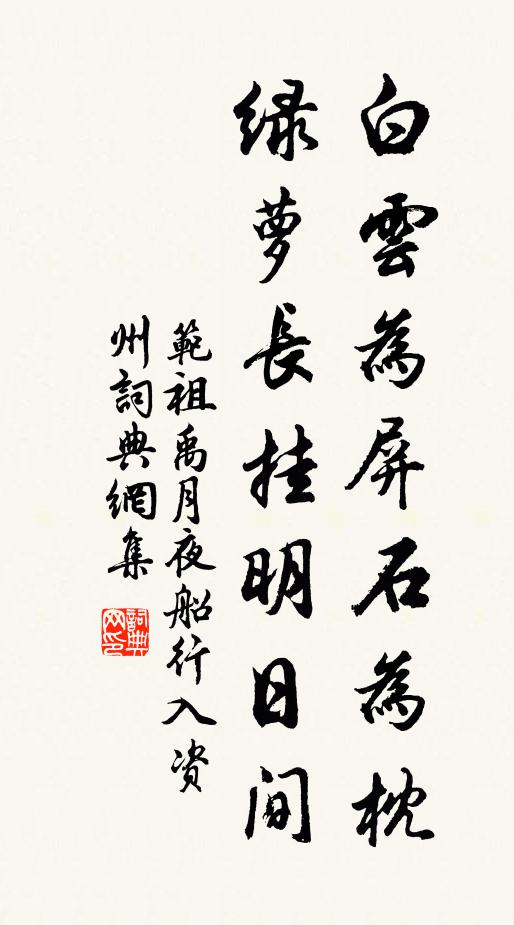 白雲為屏石為枕
绿萝長挂明日间
範祖禹月夜船行入资
州詞典網集
詞典网印